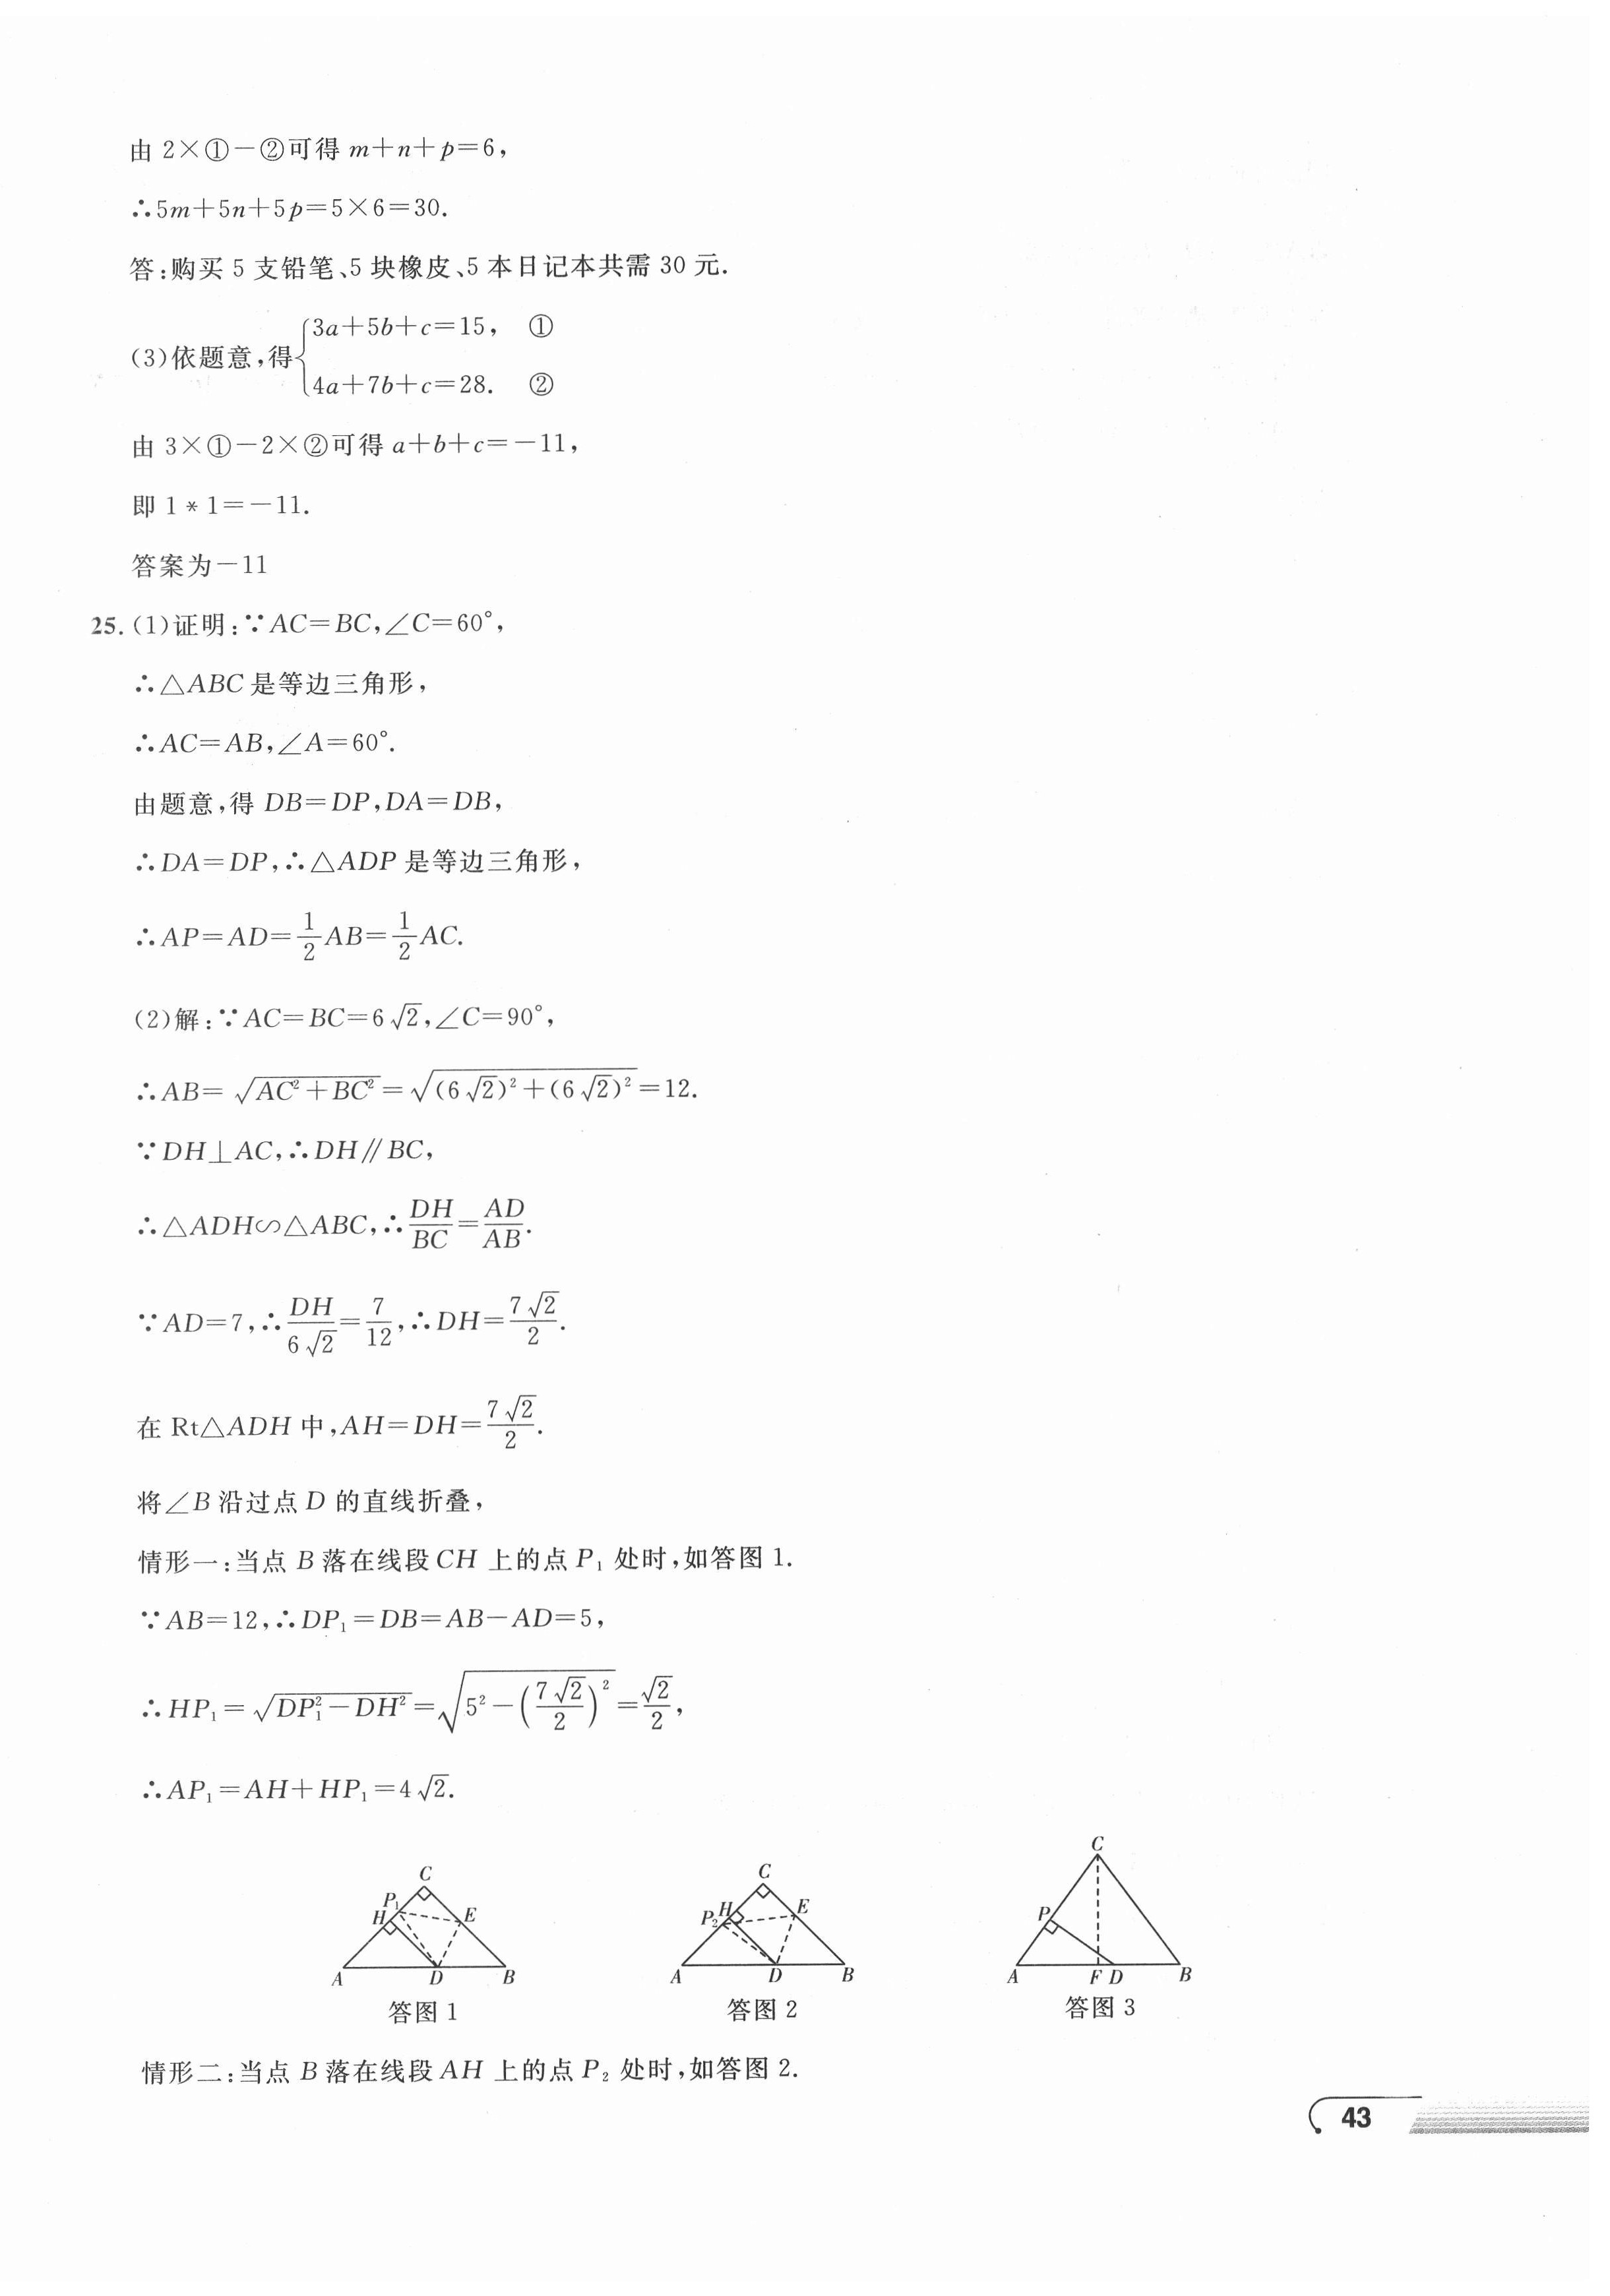 由 2×①－②可得 m＋n＋p＝6，
∴5m＋5n＋5p＝5×6＝30.
答：购买 5 支铅笔、5 块橡皮、5 本日记本共需 30 元.
(3)依题意，得{3a＋5b＋c＝15， ①
4a＋7b＋c＝28. ②
由 3×①－2×②可得 a＋b＋c＝－11，
即 1＊1＝－11.
答案为－11
25. (1)证明：∵AC＝BC，∠C＝60°，
∴△ABC 是等边三角形，
∴AC＝AB，∠A＝60°.
由题意，得 DB＝DP，DA＝DB，
∴DA＝DP，∴△ADP 是等边三角形，
∴AP＝AD＝1/2AB＝1/2AC.
(2)解：∵AC＝BC＝6√2，∠C＝90°，
∴AB＝√(AC²＋BC²)＝√((6√2)²＋(6√2)²)＝12.
∵DH⊥AC，∴DH∥BC，
∴△ADH∽△ABC，∴DH/BC＝AD/AB.
∵AD＝7，∴DH/6√2＝7/12，∴DH＝7√2/2.
在 Rt△ADH 中，AH＝DH＝7√2/2.
将∠B 沿过点 D 的直线折叠，
情形一：当点 B 落在线段 CH 上的点 P₁ 处时，如答图 1.
∵AB＝12，∴DP₁＝DB＝AB－AD＝5，
∴HP₁＝√(DP₁²－DH²)＝√(5²－(7√2/2)²)＝√2/2，
∴AP₁＝AH＋HP₁＝4√2.
C
P₁
H
E
A
D
B
答图 1
C
H
P₂
E
A
D
B
答图 2
C
P
A
F
D
B
答图 3
情形二：当点 B 落在线段 AH 上的点 P₂ 处时，如答图 2.
43